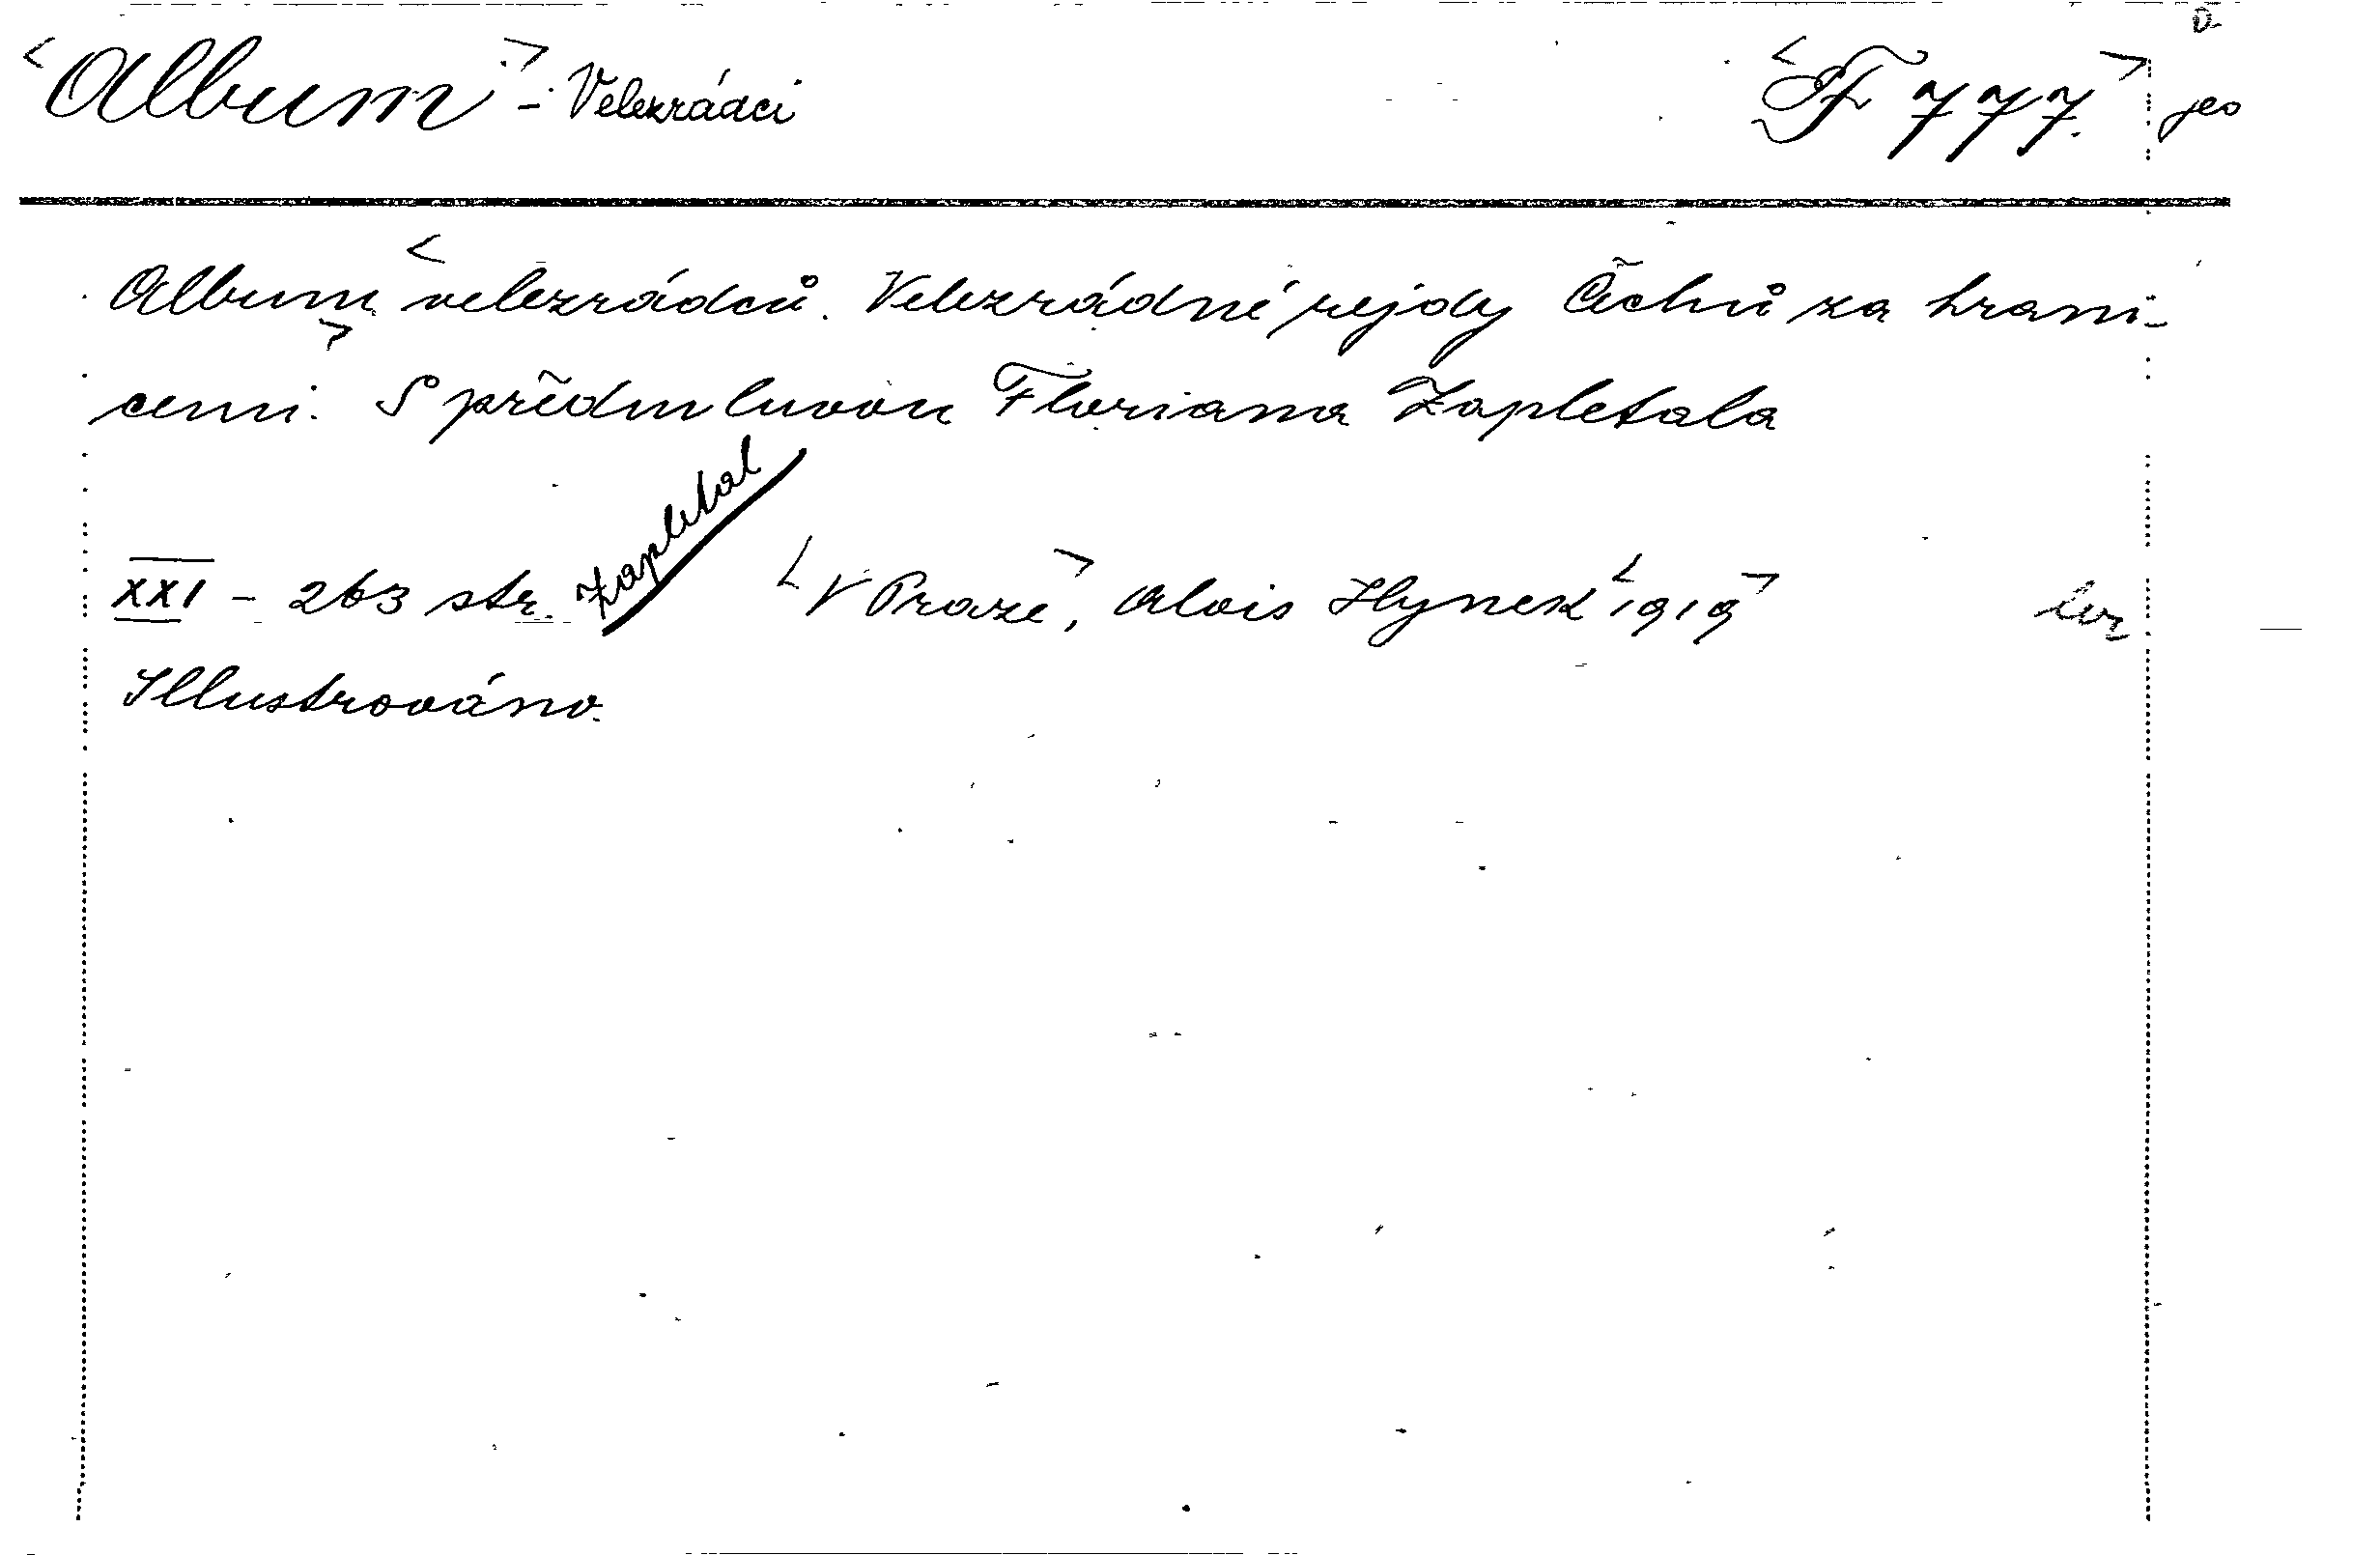 <Album> - Velezrádci <F 777.>
Album <velezrádců>. Velezrádné rejdy Čechů za hrani-
cemi. S předmluvou Floriana Zapletala
XXI - 263 str. Zapletal <V Praze>, Alois Hynek <1919>
Illustrováno.